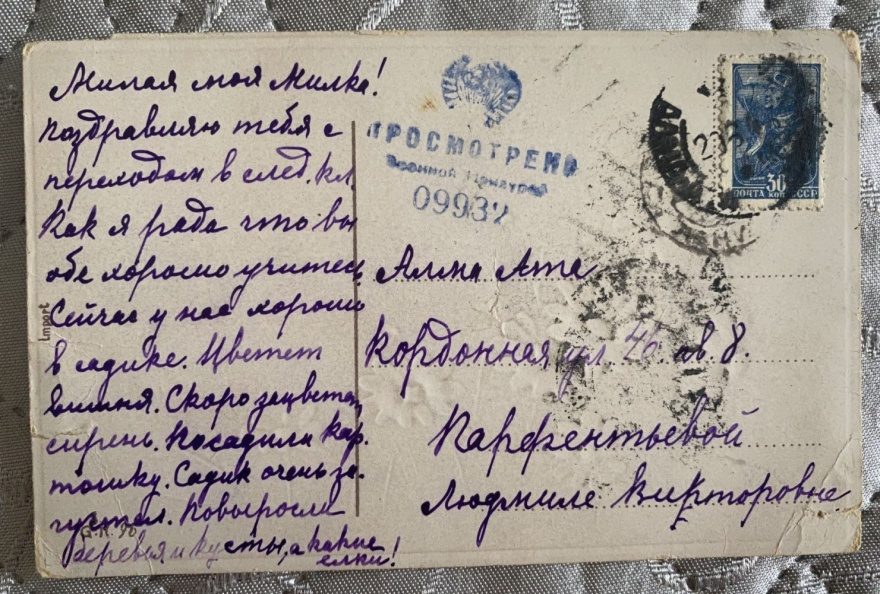 Милая моя Милка!
Поздравляю тебя с
переходом в след. кл.
Как я рада что вы
обе хорошо учитесь.
Сейчас у нас хорошо
в садике. Цветет
вишня. Скоро зацветет
сирень. Посадили кар-
тошку. Садик очень за-
густел. Повыросли
деревья и кусты, а какие
елки!
Import
G.K. 90
ПРОСМОТРЕНО
Военной Цензурой
09932
30
ПОЧТА КОП СССР
Алма Ата
Кордонная ул 46. кв. 8.
Парфентьевой
Людмиле Викторовне